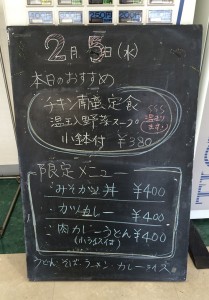 2月5日(水)
本日のおすすめ
チキン南蛮定食
温玉入野菜スープ
温まります!
小鉢付 ¥380
限定メニュー
みそカツ丼 ¥400
・カツカレー ¥400
・肉カレーうどん ¥400
(小ライス付)
うどん・そば・ラーメン カレーライス。